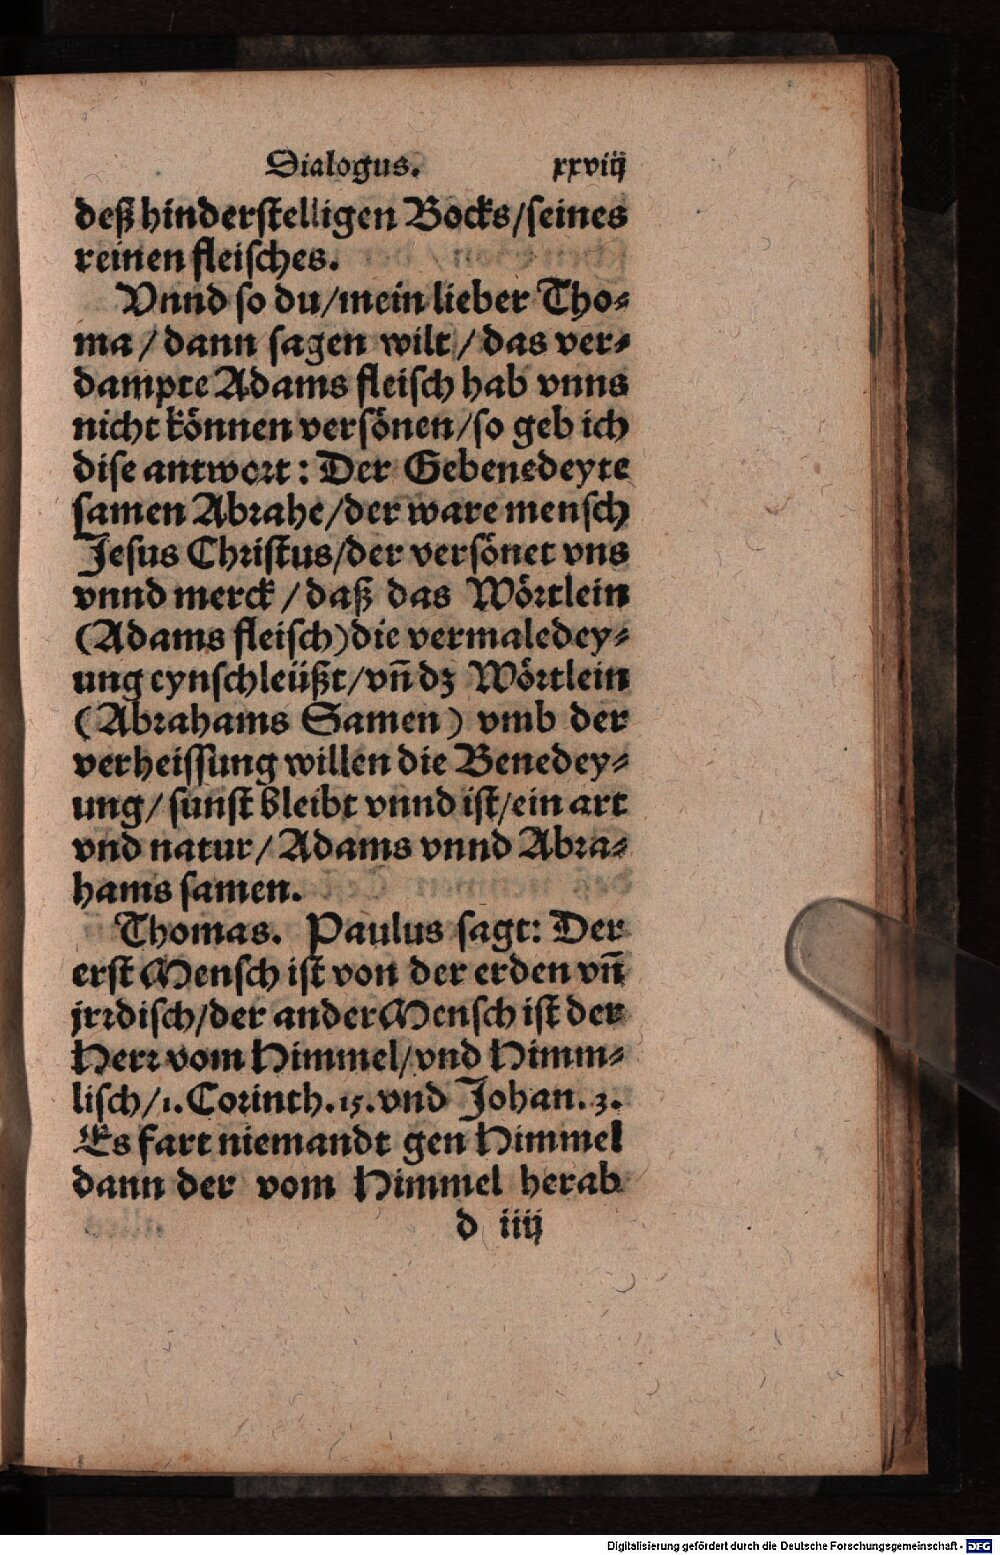 Dialogus. xxviij
deß hinderstelligen Bocks/seines
reinen fleisches.
Vnnd so du/mein lieber Tho⸗
ma / dann sagen wilt / das ver⸗
dampte Adams fleisch hab vnns
nicht können versönen/so geb ich
dise antwort : Der Gebenedeyte
samen Abrahe/der ware mensch
Jesus Christus/der versönet vns
vnnd merck / daß das Wörtlein
(Adams fleisch) die vermaledey⸗
ung eynschleüßt/vñ dz Wörtlein
(Abrahams Samen) vmb der
verheissung willen die Benedey⸗
ung/ sunst bleibt vnnd ist/ein art
vnd natur/ Adams vnnd Abra⸗
hams samen.
Thomas. Paulus sagt: Der
erst Mensch ist von der erden vñ
jrrdisch/der ander Mensch ist der
Herr vom Himmel/vnd Himm⸗
lisch/1. Corinth. 15. vnd Johan. 3.
Es fart niemandt gen Himmel
dann der vom Himmel herab
d iiij
Digitalisierung gefördert durch die Deutsche Forschungsgemeinschaft - DFG